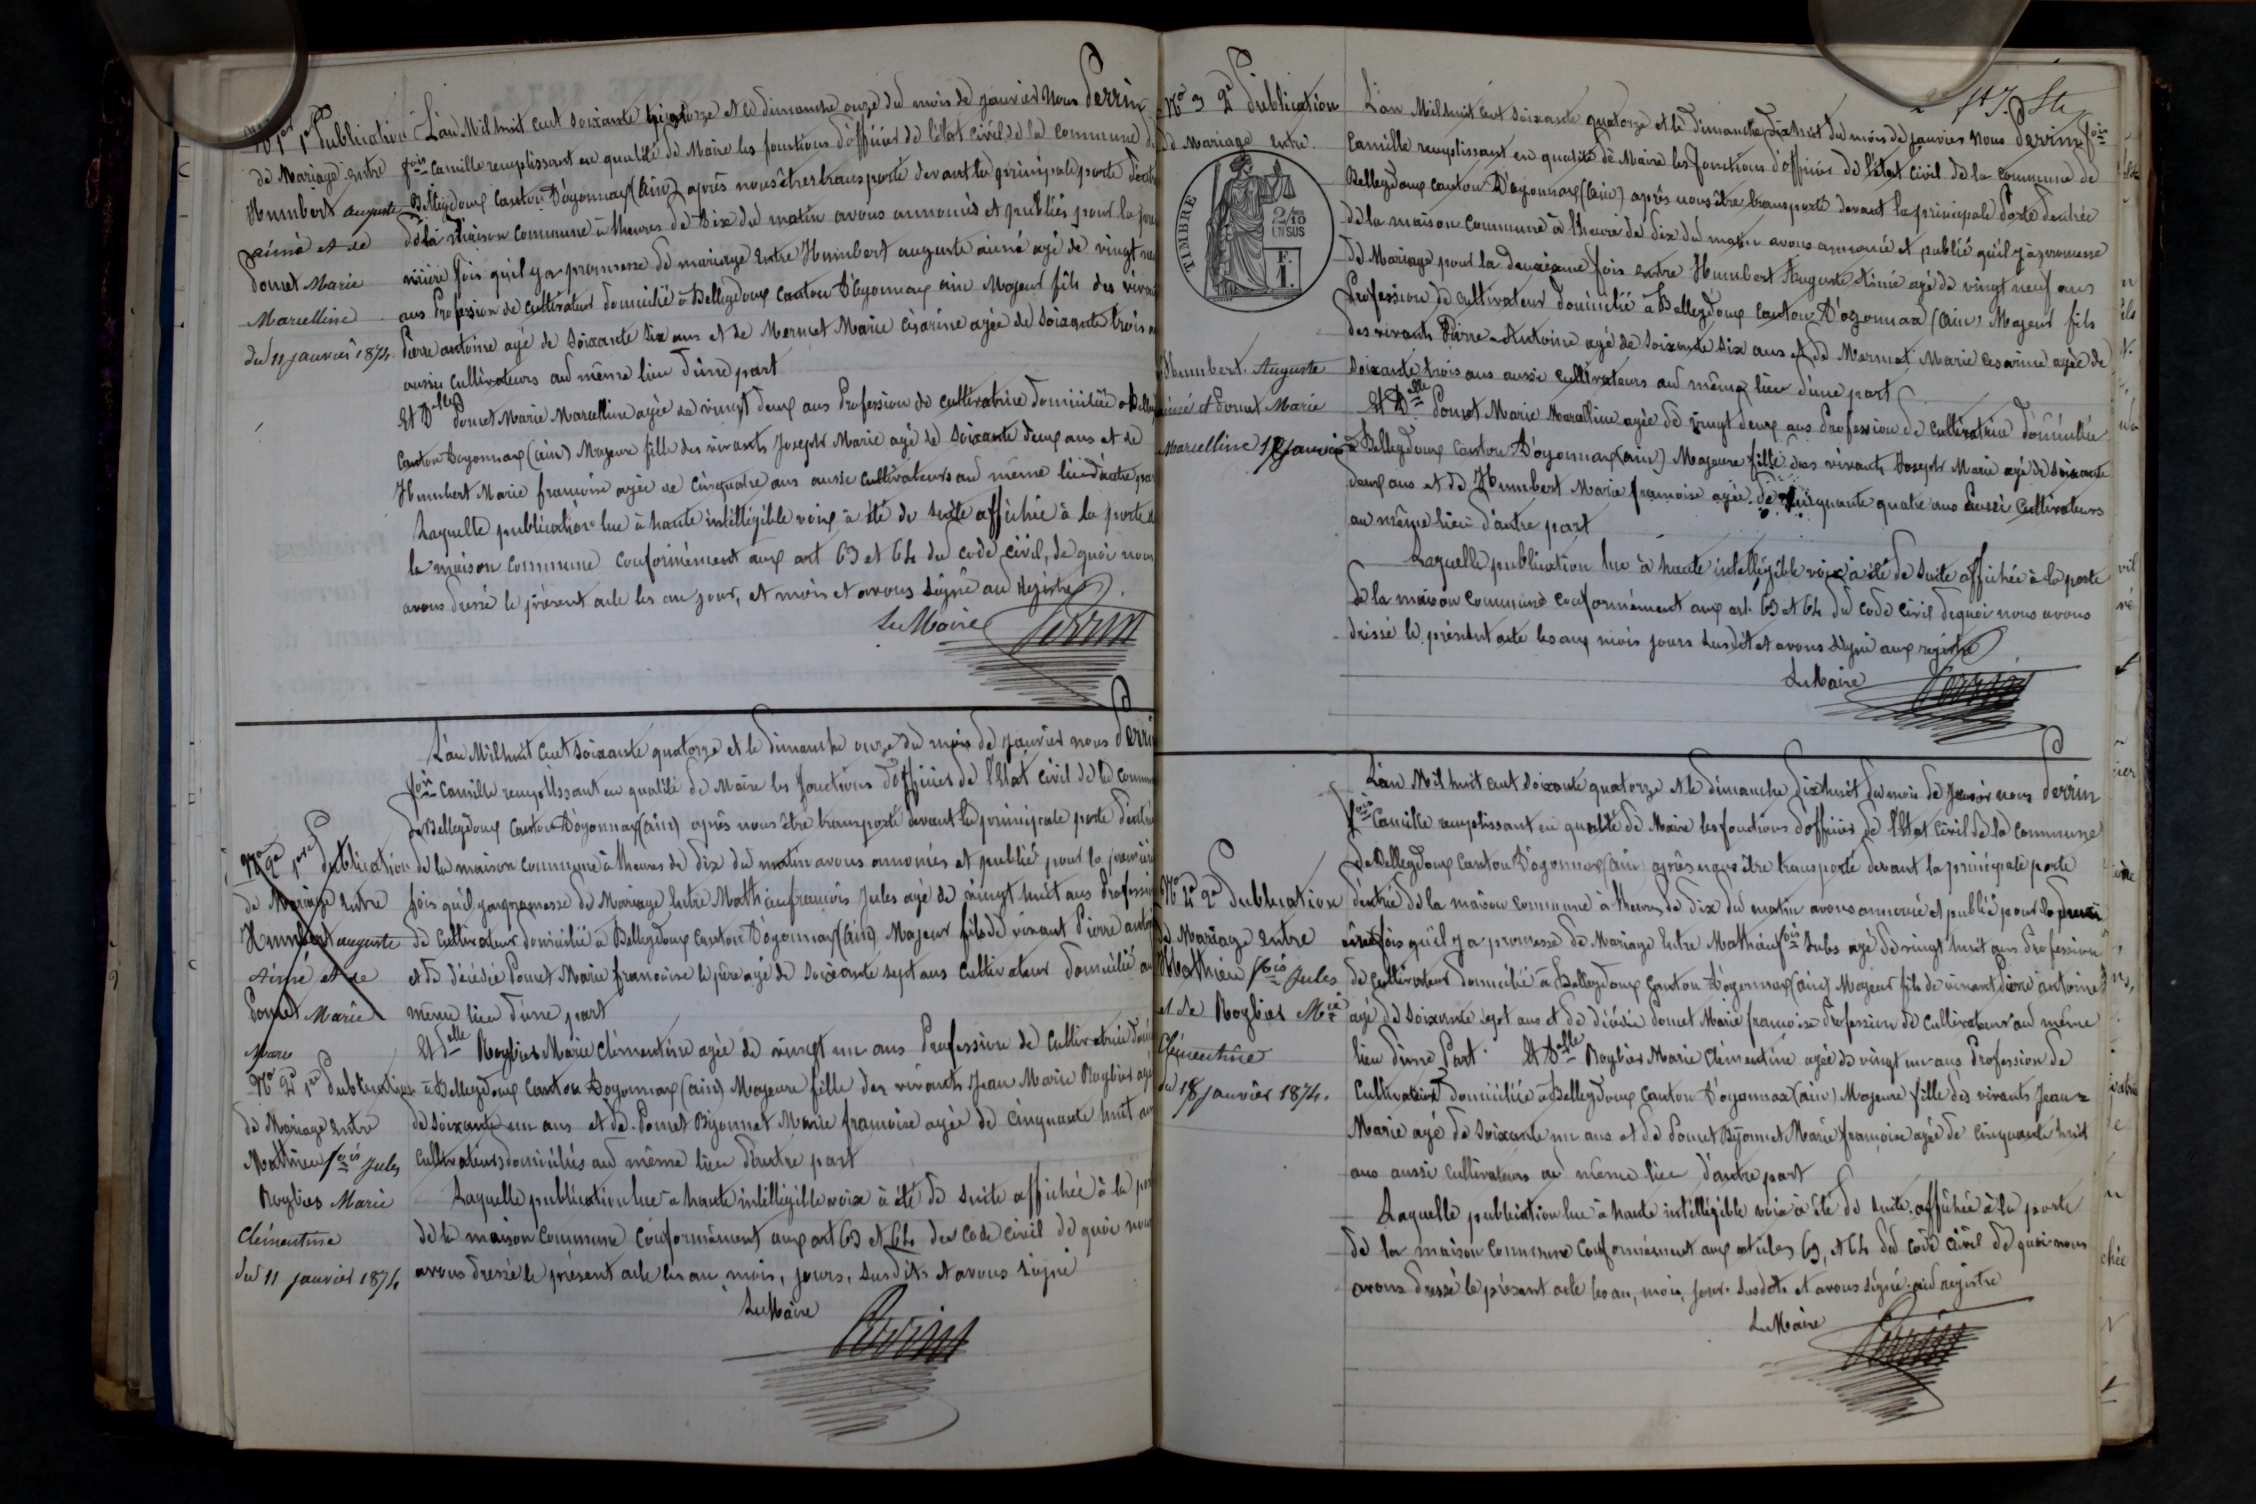 No 1er 1re Publication
de Mariage entre
Humbert auguste
aimé et de
Pomet Marie
Marcelline
du 11 janvier 1874
L'an Mil huit cent soixante quatorze et le dimanche onze du mois de janvier nous Perrin
fois Camille remplissant en qualité de Maire les fonctions d'officier de l'état civil de la commune de
Bellegdoux Canton D'oyonnax (Ain) après nous être transporté devant la principale porte d'entr
de la Maison commune à lheures de Dix du matin avons annoncés et publiés pour la pre
mière fois qu'il y a promesse de mariage entre Humbert auguste aimé agé de vingt neu
ans Profession de cultivateur domicilié à Bellegdoux Canton D'oyonnax ain Majeur fils des viva
Pierre antoine agé de Soixante Six ans et de Mermet Marie césarine agée de soixante trois a
aussi cultivateurs au même lieu d'une part
Et Delle Pomet Marie Marcelline agée de vingt deux ans Profession de cultivatrice domiciliée à Belleg
Canton Doyonnax (ain) Majeure fille des vivants Joseph Marie agé de Soixante deux ans et de
Humbert Marie francoise agée de Cinquatre ans aussi Cultivateurs au même lieu d'autre par
Laquelle publication lue à haute intélligible voix à été de suite affichée à la porte d
la maison commune conformément aux art 63 et 64 du code civil, de quoi nous
avons dressé le présent acte les an jour, et mois et avons signé au registre
Le Maire Perrin
No 2e 1re Publication
de Mariage entre
Humbert auguste
Aimé et de
Pomet Marie
Marie
No 2e 1re Publication
de Mariage entre
Mathieu fois Jules
Roybier Marie
Clémentine
du 11 janvier 1874
L'an Mil huit cent soixante quatorze et le dimanche onze du mois de janvier nous Perri
fois Camille remplissant en qualité de Maire les fonctions d'officier de l'état civil de la comm
de Bellegdoux Canton D'oyonnax (ain) après nous être transporté devant la principale porte d'entré
de la maison commune à lheures de dix du matin avons annonces et publié pour la première
fois qu'il y a promesse de Mariage Entre Mathieu francois Jules agé de vingt huit ans Profession
de Cultivateur domicilié à Bellegdoux Canton D'oyonnax (ain) Majeur fils de vivant Pierre anto
et de décédée Pomet Marie francoise le père agé de Soixante sept ans Cultivateur domicilié au
même lieu d'une part
Et Delle Roybier Marie Clémentine agée de vingt un ans Profession de Cultivatrice domi
à Bellegdoux Canton Doyonnax (ain) Majeure fille des vivants Jean Marie Roybier agé
de Soixante un ans et de Pomet Bijonnet Marie francoise agée de Cinquante huit an
Cultivateurs domiciliés au même lieu d'autre part
Laquelle publication lue à haute intélligible voix à été de suite affichée à la por
de la maison commune conformément aux art 63 et 64 du code civil de quoi nous
avons dressé le présent acte les an, mois, jours, susdits et avons signé
Le Maire
Perrin
No 3 2e Publication
de Mariage entre
TIMBRE
2/10 EN SUS
F. 1.
Humbert Auguste
aimé et Pomet Marie
Marcelline 18 janvier
L'an Mil huit cent soixante quatorze et le dimanche Dix huit du mois de janvier nous Perrin fois
Camille remplissant en qualité de Maire les fonctions d'officier de l'état civil de la commune de
Bellegdoux canton D'oyonnax (ain) après nous être transporté devant la principale Porte d'entrée
de la maison commune à lheure de dix du matin avons annoncé et publié qu'il y à promesse
de Mariage pour la deuxième fois entre Humbert Auguste Aimé agé de vingt neuf ans
Profession de cultivateur domicilié à Bellegdoux Canton D'oyonnax (ain) Majeur fils
des vivants Pierre Antoine agé de Soixante Six ans et de Mermet Marie césarine agée de
soixante trois ans aussi cultivateurs au même lieu d'une part
Et Delle Pomet Marie Marcelline agée de vingt deux ans Profession de cultivatrice domiciliée
à Bellegdoux Canton D'oyonnax (ain) Majeure fille des vivants Joseph Marie agé de soixante
deux ans et de Humbert Marie francoise agée de Cinquante quatre ans aussi Cultivateurs
au même lieu d'autre part
Laquelle publication lue à haute intélligible voix à été de suite affichée à la porte
de la maison commune conformément aux art 63 et 64 du code civil de quoi nous avons
dréssé le présent acte les an, mois jours susdit et avons signé aux registre
Le Maire Perrin
No 4e 2e Publication
de Mariage entre
Mathieu fois Jules
et de Roybier Mie
Clémentine
du 18 janvier 1874.
L'an Mil huit cent soixante quatorze et le dimanche dix huit du mois de janvier nous Perrin
fois Camille remplissant en qualité de Maire les fonctions d'officier de l'état civil de la commune
de Bellegdoux Canton D'oyonnax (ain) après nous être transporté devant la principale porte
d'entrée de la maison commune à lheures de dix du matin avons annoncé et publié pour la deuxi
ème fois qu'il y a promesse de Mariage Entre Mathieu fois Jules agé de vingt huit ans Profession
de cultivateur domicilié à Bellegdoux Canton D'oyonnax (ain) Majeur fils de vivant Pierre antoine
agé de Soixante sept ans et de décédée Pomet Marie francoise Profession de cultivateur au même
lieu d'une Part. Et Delle Roybier Marie Clémentine agée de vingt un ans Profession de
Cultivatrice domiciliée à Bellegdoux Canton D'oyonnax (ain) Majeure fille des vivants Jean
Marie agé de Soixante un ans et de Pomet Bijonnet Marie francoise agée de Cinquante huit
ans aussi Cultivateurs au même lieu d'autre part
Laquelle publication lue à haute intélligible voix à été de suite affichée à la porte
de la maison commune conformément aux articles 63, et 64 du code civil de quoi nous
avons dressé le présent acte les an, mois, jour susdits et avons signé au registre
Le Maire Perrin